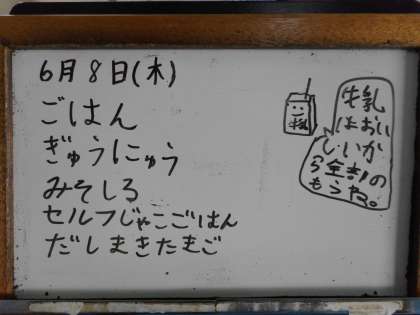 6月8日(木)
ごはん
ぎゅうにゅう
みそしる
セルフじゃこごはん
だしまきたまご
牛乳
牛乳
はおい
しいか
ら全部の
もうね。